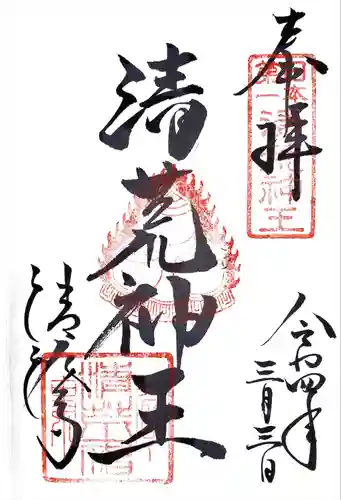 奉拝
日本
第一清荒神王
清荒神王
令和四年
三月三日
清荒神